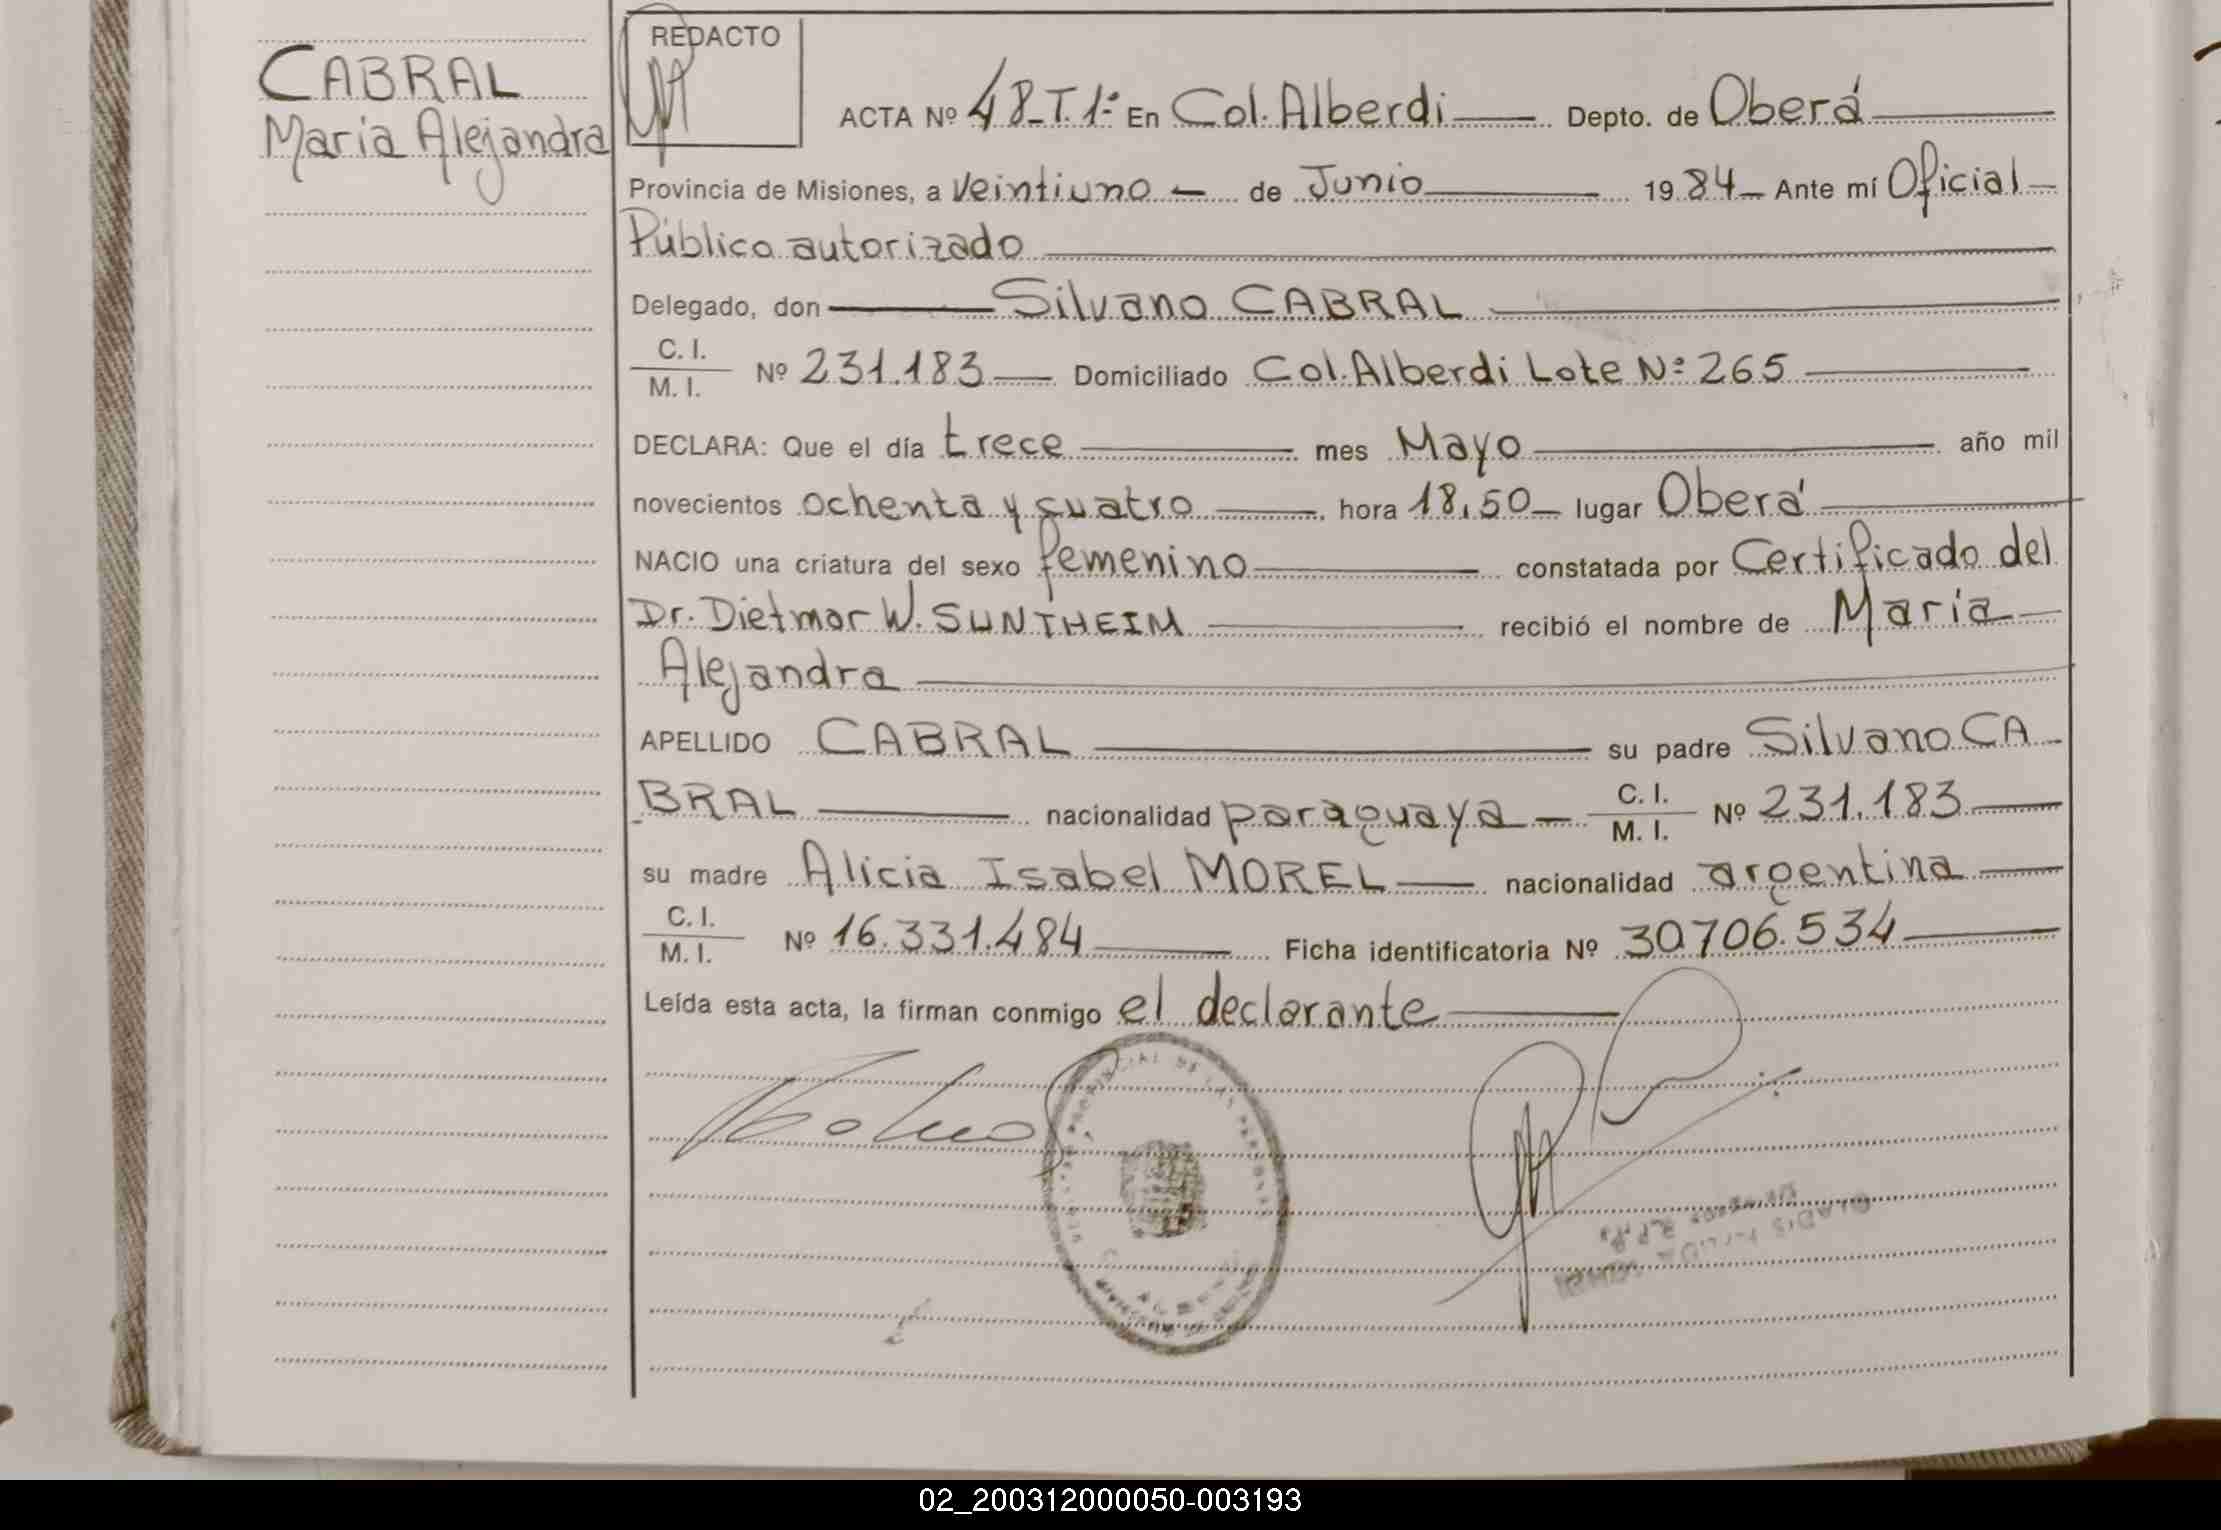 CABRAL
María Alejandra
REDACTO
ACTA Nº 48-T.1º En Col. Alberdi Depto. de Oberá
Provincia de Misiones, a veintiuno de Junio 1984 Ante mí Oficial
Público autorizado
Delegado, don Silvano CABRAL
C. I.
M. I. Nº 231.183 Domiciliado Col. Alberdi Lote Nº 265
DECLARA: Que el día trece mes Mayo año mil
novecientos ochenta y cuatro hora 18,50 lugar Oberá
NACIO una criatura del sexo femenino constatada por Certificado del
Dr. Dietmar W. SUNTHEIM recibió el nombre de María
Alejandra
APELLIDO CABRAL su padre Silvano CA
BRAL nacionalidad paraguaya C. I. M. I. Nº 231.183
su madre Alicia Isabel MOREL nacionalidad argentina
C. I.
M. I. Nº 16.331.484 Ficha identificatoria Nº 30706.534
Leída esta acta, la firman conmigo el declarante
02_200312000050-003193